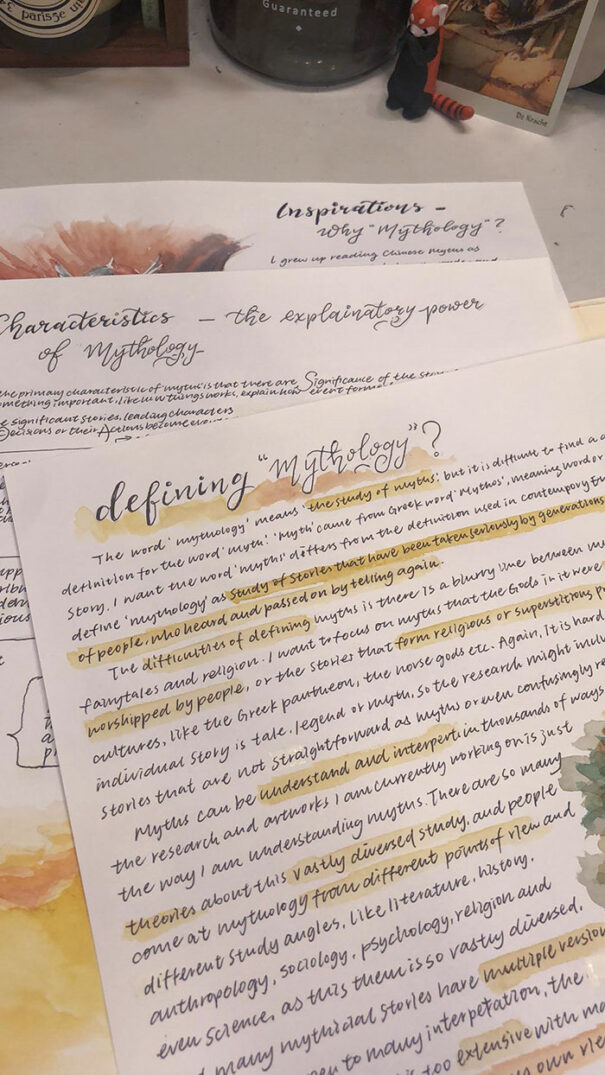 parisse
Guaranteed
De Kracht
Inspirations –
Why "Mythology"?
I grew up reading Chinese Myths as
Characteristics – the explainatory power
of Mythology
the primary characteristic of myths is that there are Significance of the
something important, like how things works, explain how event
significant stories, leading characters
Decisions or their Actions become
defining "Mythology"?
The word 'mythology' means 'the study of myths'; but it is difficult to find a
definition for the word 'myth'. 'Myth' came from Greek word 'Mythos', meaning word or
story. I want the word 'myths' differs from the definition used in contempory
define 'mythology' as study of stories that have been taken seriously by generations
of people, who heard and passed on by telling again.
The difficulties of defining myths is there is a blurry line between
fairytales and religion. I want to focus on myths that the Gods in it were
worshipped by people, or the stories that form religious or superstitious
cultures, like the Greek pantheon, the norse gods etc. Again, it is hard
individual story is tale, legend or myth, so the research might
stories that are not straightforward as myths or even confusingly
Myths can be understand and interpert in thousands of ways
the research and artworks I am currently working on is just
the way I am understanding myths. There are so many
theories about this vastly diversed study, and people
come at mythology from different points of view and
different study angles, like literature, history,
anthropology, sociology, psychology, religion and
even science, as this them is so vastly diversed.
many mythical stories have multiple
open to many interpetation, the
is too extensive with
own